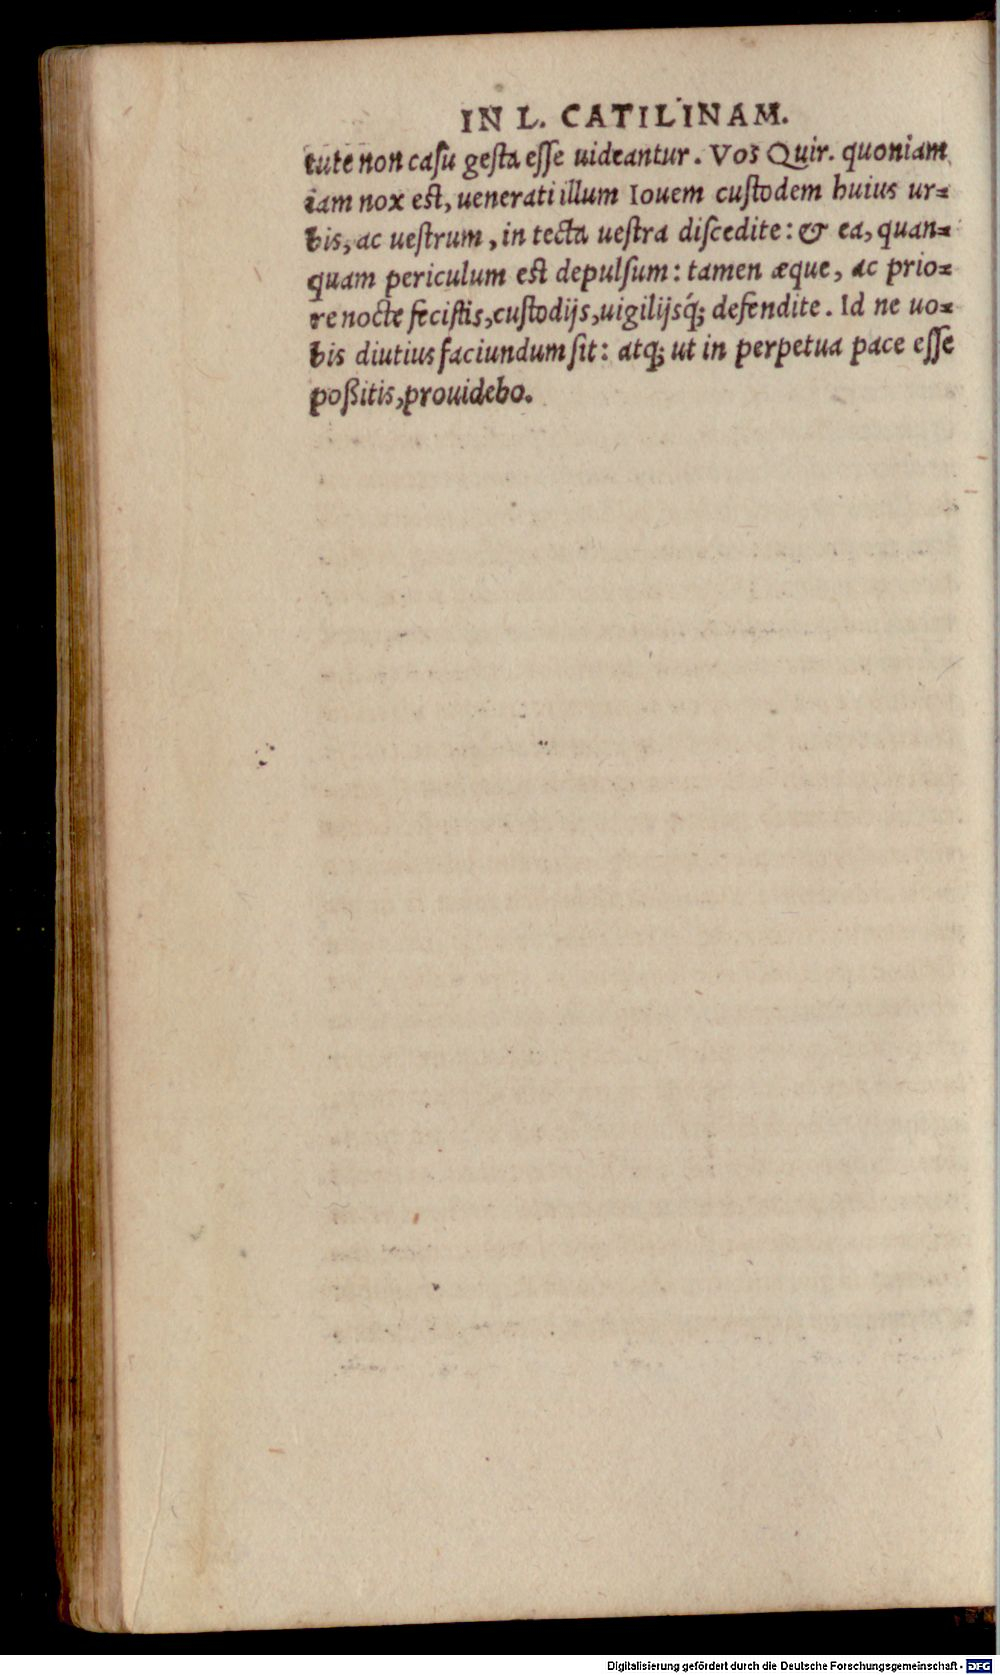 IN L. CATILINAM.
tute non casu gesta esse uideantur. Vos Quir. quoniam
iam nox est, uenerati illum Iouem custodem huius ur-
bis, ac uestrum, in tecta uestra discedite: & ea, quan-
quam periculum est depulsum: tamen æque, ac prio-
re nocte fecistis, custodijs, uigilijsq́; defendite. Id ne uo-
bis diutius faciundum sit: atq; ut in perpetua pace esse
poßitis, prouidebo.
Digitalisierung gefördert durch die Deutsche Forschungsgemeinschaft - DFG